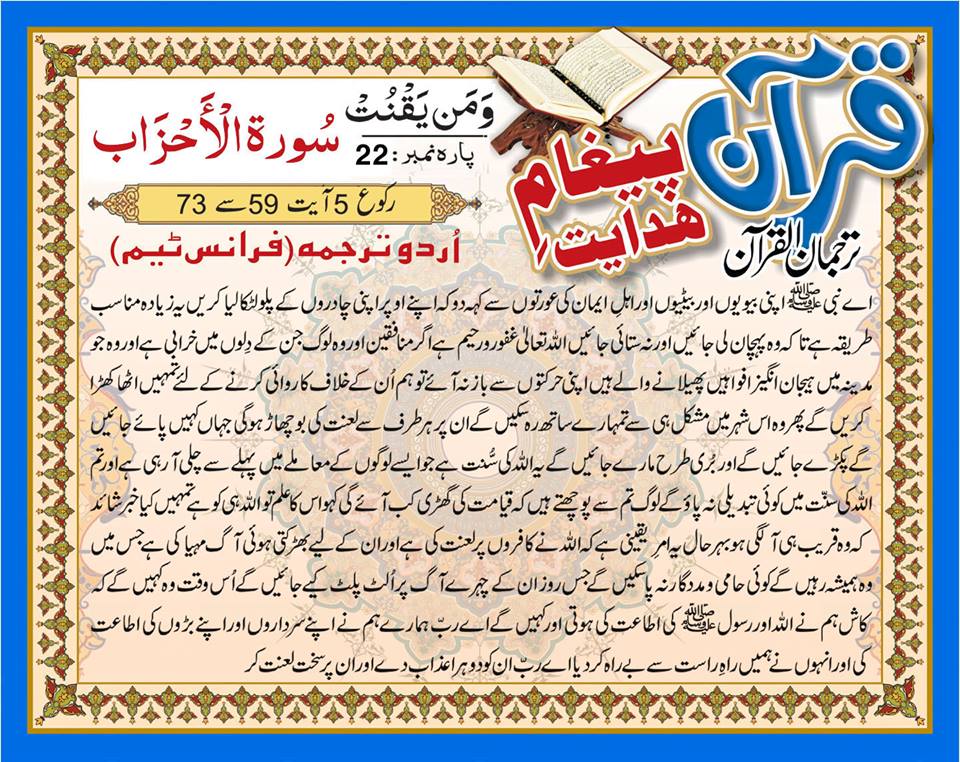 قرآن
پیغامِ
ھدایت
ترجمان القرآن
وَمَن يَقْنُتْ
پارہ نمبر: 22
سُورة الْأَحْزَاب
رکوع 5 آیت 59 سے 73
اُردو ترجمہ (فرانس ٹیم)
اے نبی ﷺ اپنی بیویوں اور بیٹیوں اور اہلِ ایمان کی عورتوں سے کہہ دو کہ اپنے اوپر اپنی چادروں کے پلو لٹکا لیا کریں یہ زیادہ مناسب
طریقہ ہے تا کہ وہ پہچان لی جائیں اور نہ ستائی جائیں اللہ تعالیٰ غفور و رحیم ہے اگر منافقین اور وہ لوگ جن کے دِلوں میں خرابی ہے اور وہ جو
مدینہ میں ہیجان انگیز افواہیں پھیلانے والے ہیں اپنی حرکتوں سے باز نہ آئے تو ہم اُن کے خلاف کاروائی کرنے کے لئے تمہیں اٹھا کھڑا
کریں گے پھر وہ اس شہر میں مشکل ہی سے تمہارے ساتھ رہ سکیں گے ان پر ہر طرف سے لعنت کی بوچھاڑ ہوگی جہاں کہیں پائے جائیں
گے پکڑے جائیں گے اور بُری طرح مارے جائیں گے یہ اللہ کی سُنت ہے جو ایسے لوگوں کے معاملے میں پہلے سے چلی آ رہی ہے اور تم
اللہ کی سنّت میں کوئی تبدیلی نہ پاؤ گے لوگ تم سے پوچھتے ہیں کہ قیامت کی گھڑی کب آئے گی کہو اس کا علم تو اللہ ہی کو ہے تمہیں کیا خبر شائد
کہ وہ قریب ہی آ لگی ہو بہر حال یہ امر یقینی ہے کہ اللہ نے کافروں پر لعنت کی ہے اور ان کے لیے بھڑکتی ہوئی آگ مہیا کی ہے جس میں
وہ ہمیشہ رہیں گے کوئی حامی و مددگار نہ پا سکیں گے جس روز ان کے چہرے آگ پر اُلٹ پلٹ کیے جائیں گے اُس وقت وہ کہیں گے کہ
کاش ہم نے اللہ اور رسول ﷺ کی اطاعت کی ہوتی اور کہیں گے اے ربّ ہمارے ہم نے اپنے سَرداروں اور اپنے بڑوں کی اطاعت
کی اور انہوں نے ہمیں راہِ راست سے بے راہ کر دیا اے ربّ ان کو دوہرا عذاب دے اور ان پر سخت لعنت کر